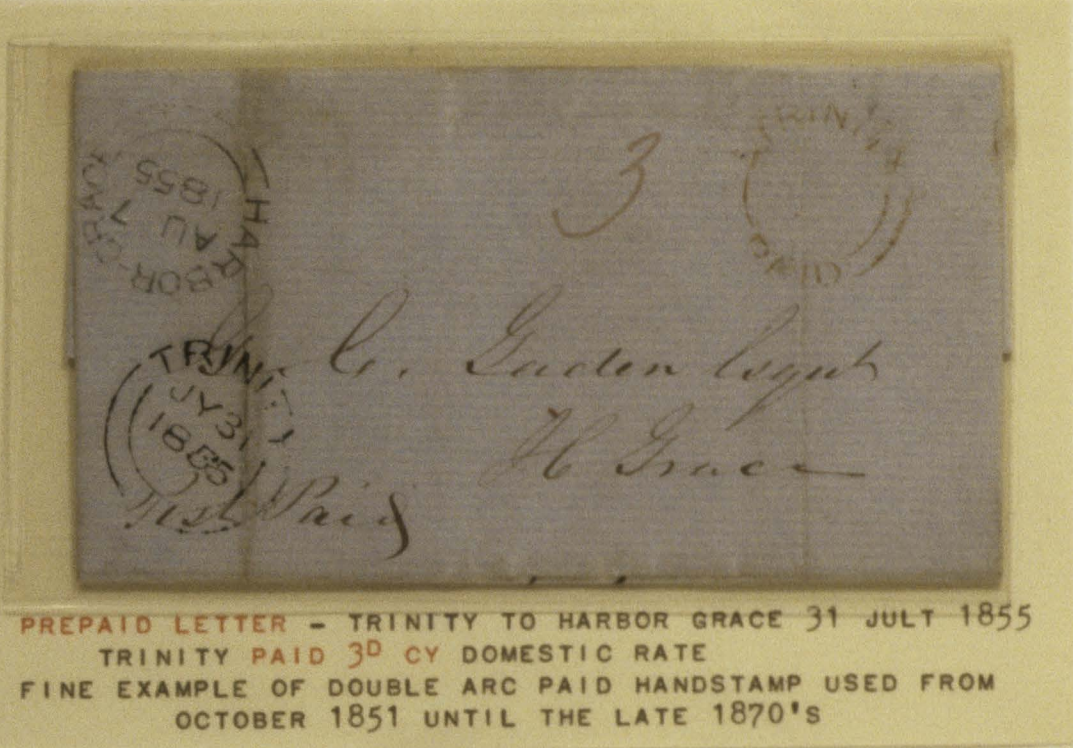 HARBOR-GRACE
AU 7
1855
3
TRINITY
PAID
TRINITY
JY 31
1855
G. C. Gaden Esqur
H Grace
Post Paid
PREPAID LETTER - TRINITY TO HARBOR GRACE 31 JULT 1855
TRINITY PAID 3D CY DOMESTIC RATE
FINE EXAMPLE OF DOUBLE ARC PAID HANDSTAMP USED FROM
OCTOBER 1851 UNTIL THE LATE 1870'S